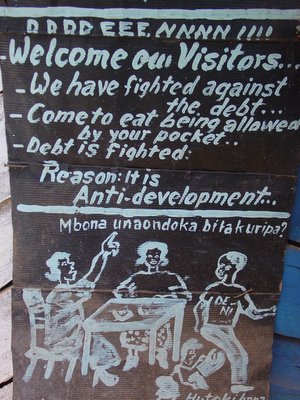 - Welcome our Visitors...
- We have fighted against
the debt...
- Come to eat being allowed
by your pocket..
- Debt is fighted:
Reason: It is
Anti-development...
Mbona unaondoka bila kuripa?
DE-
NI